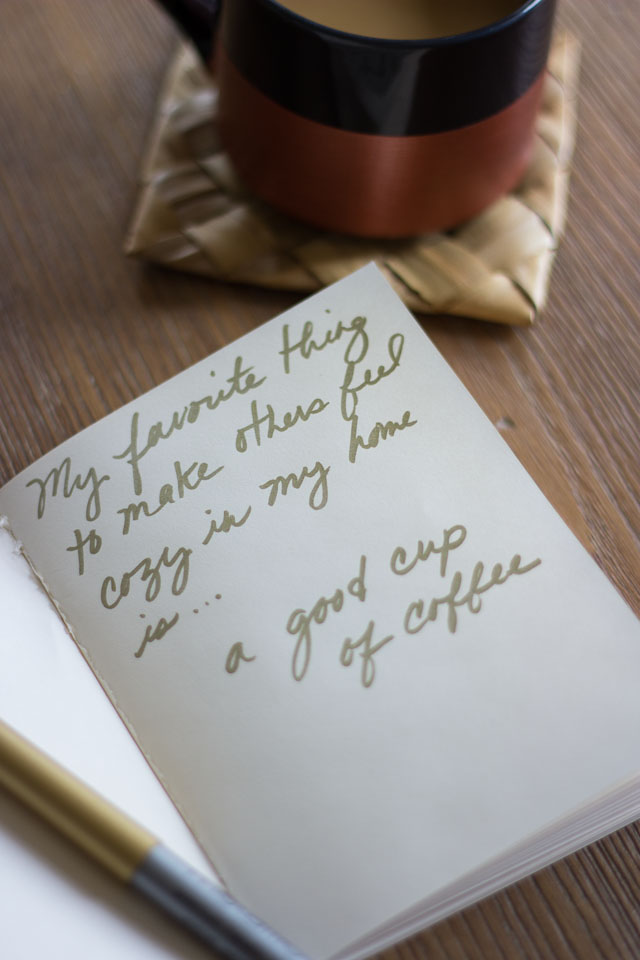 My favorite thing
to make others feel
cozy in my home
is...
a good cup
of coffee